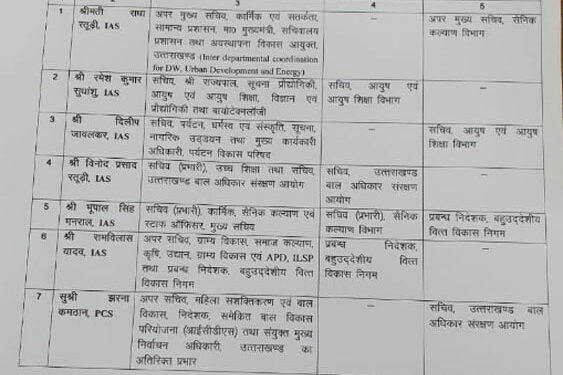 1 2 3 4 5
1 श्रीमती राधा रतूड़ी, IAS
अपर मुख्य सचिव, कार्मिक एवं सतर्कता,
सामान्य प्रशासन, मा0 मुख्यमंत्री, सचिवालय
प्रशासन तथा अवस्थापना विकास आयुक्त,
उत्तराखण्ड (Inter departmental coordination
for DW, Urban Development and Energy)
—
अपर मुख्य सचिव, सैनिक
कल्याण विभाग
2 श्री रमेश कुमार
सुधांशु, IAS
सचिव, श्री राज्यपाल, सूचना प्रौद्योगिकी,
आयुष एवं आयुष शिक्षा, विज्ञान एवं
प्रौद्योगिकी तथा बायोटेक्नॉलॉजी
सचिव, आयुष एवं
आयुष शिक्षा विभाग
—
3 श्री दिलीप
जावलकर, IAS
सचिव, पर्यटन, धर्मस्व एवं संस्कृति, सूचना,
नागरिक उड्डयन तथा मुख्य कार्यकारी
अधिकारी, पर्यटन विकास परिषद
—
सचिव, आयुष एवं आयुष
शिक्षा विभाग
4 श्री विनोद प्रसाद
रतूड़ी, IAS
सचिव (प्रभारी), उच्च शिक्षा तथा सचिव,
उत्तराखण्ड बाल अधिकार संरक्षण आयोग
सचिव, उत्तराखण्ड
बाल अधिकार संरक्षण
आयोग
—
5 श्री भूपाल सिंह
मनराल, IAS
सचिव (प्रभारी), कार्मिक, सैनिक कल्याण एवं
स्टाफ ऑफिसर, मुख्य सचिव
सचिव (प्रभारी), सैनिक
कल्याण विभाग
प्रबन्ध निदेशक, बहुउद्देशीय
वित्त विकास निगम
6 श्री रामविलास
यादव, IAS
अपर सचिव, ग्राम्य विकास, समाज कल्याण,
कृषि, उद्यान, ग्राम्य विकास एवं APD, ILSP
तथा प्रबन्ध निदेशक, बहुउद्देशीय वित्त
विकास निगम
प्रबन्ध निदेशक,
बहुउद्देशीय वित्त
विकास निगम
—
7 सुश्री झरना
कमठान, PCS
अपर सचिव, महिला सशक्तिकरण एवं बाल
विकास, निदेशक, समेकित बाल विकास
परियोजना (आईसीडीएस) तथा संयुक्त मुख्य
निर्वाचन अधिकारी, उत्तराखण्ड का
अतिरिक्त प्रभार
—
सचिव, उत्तराखण्ड बाल
अधिकार संरक्षण आयोग